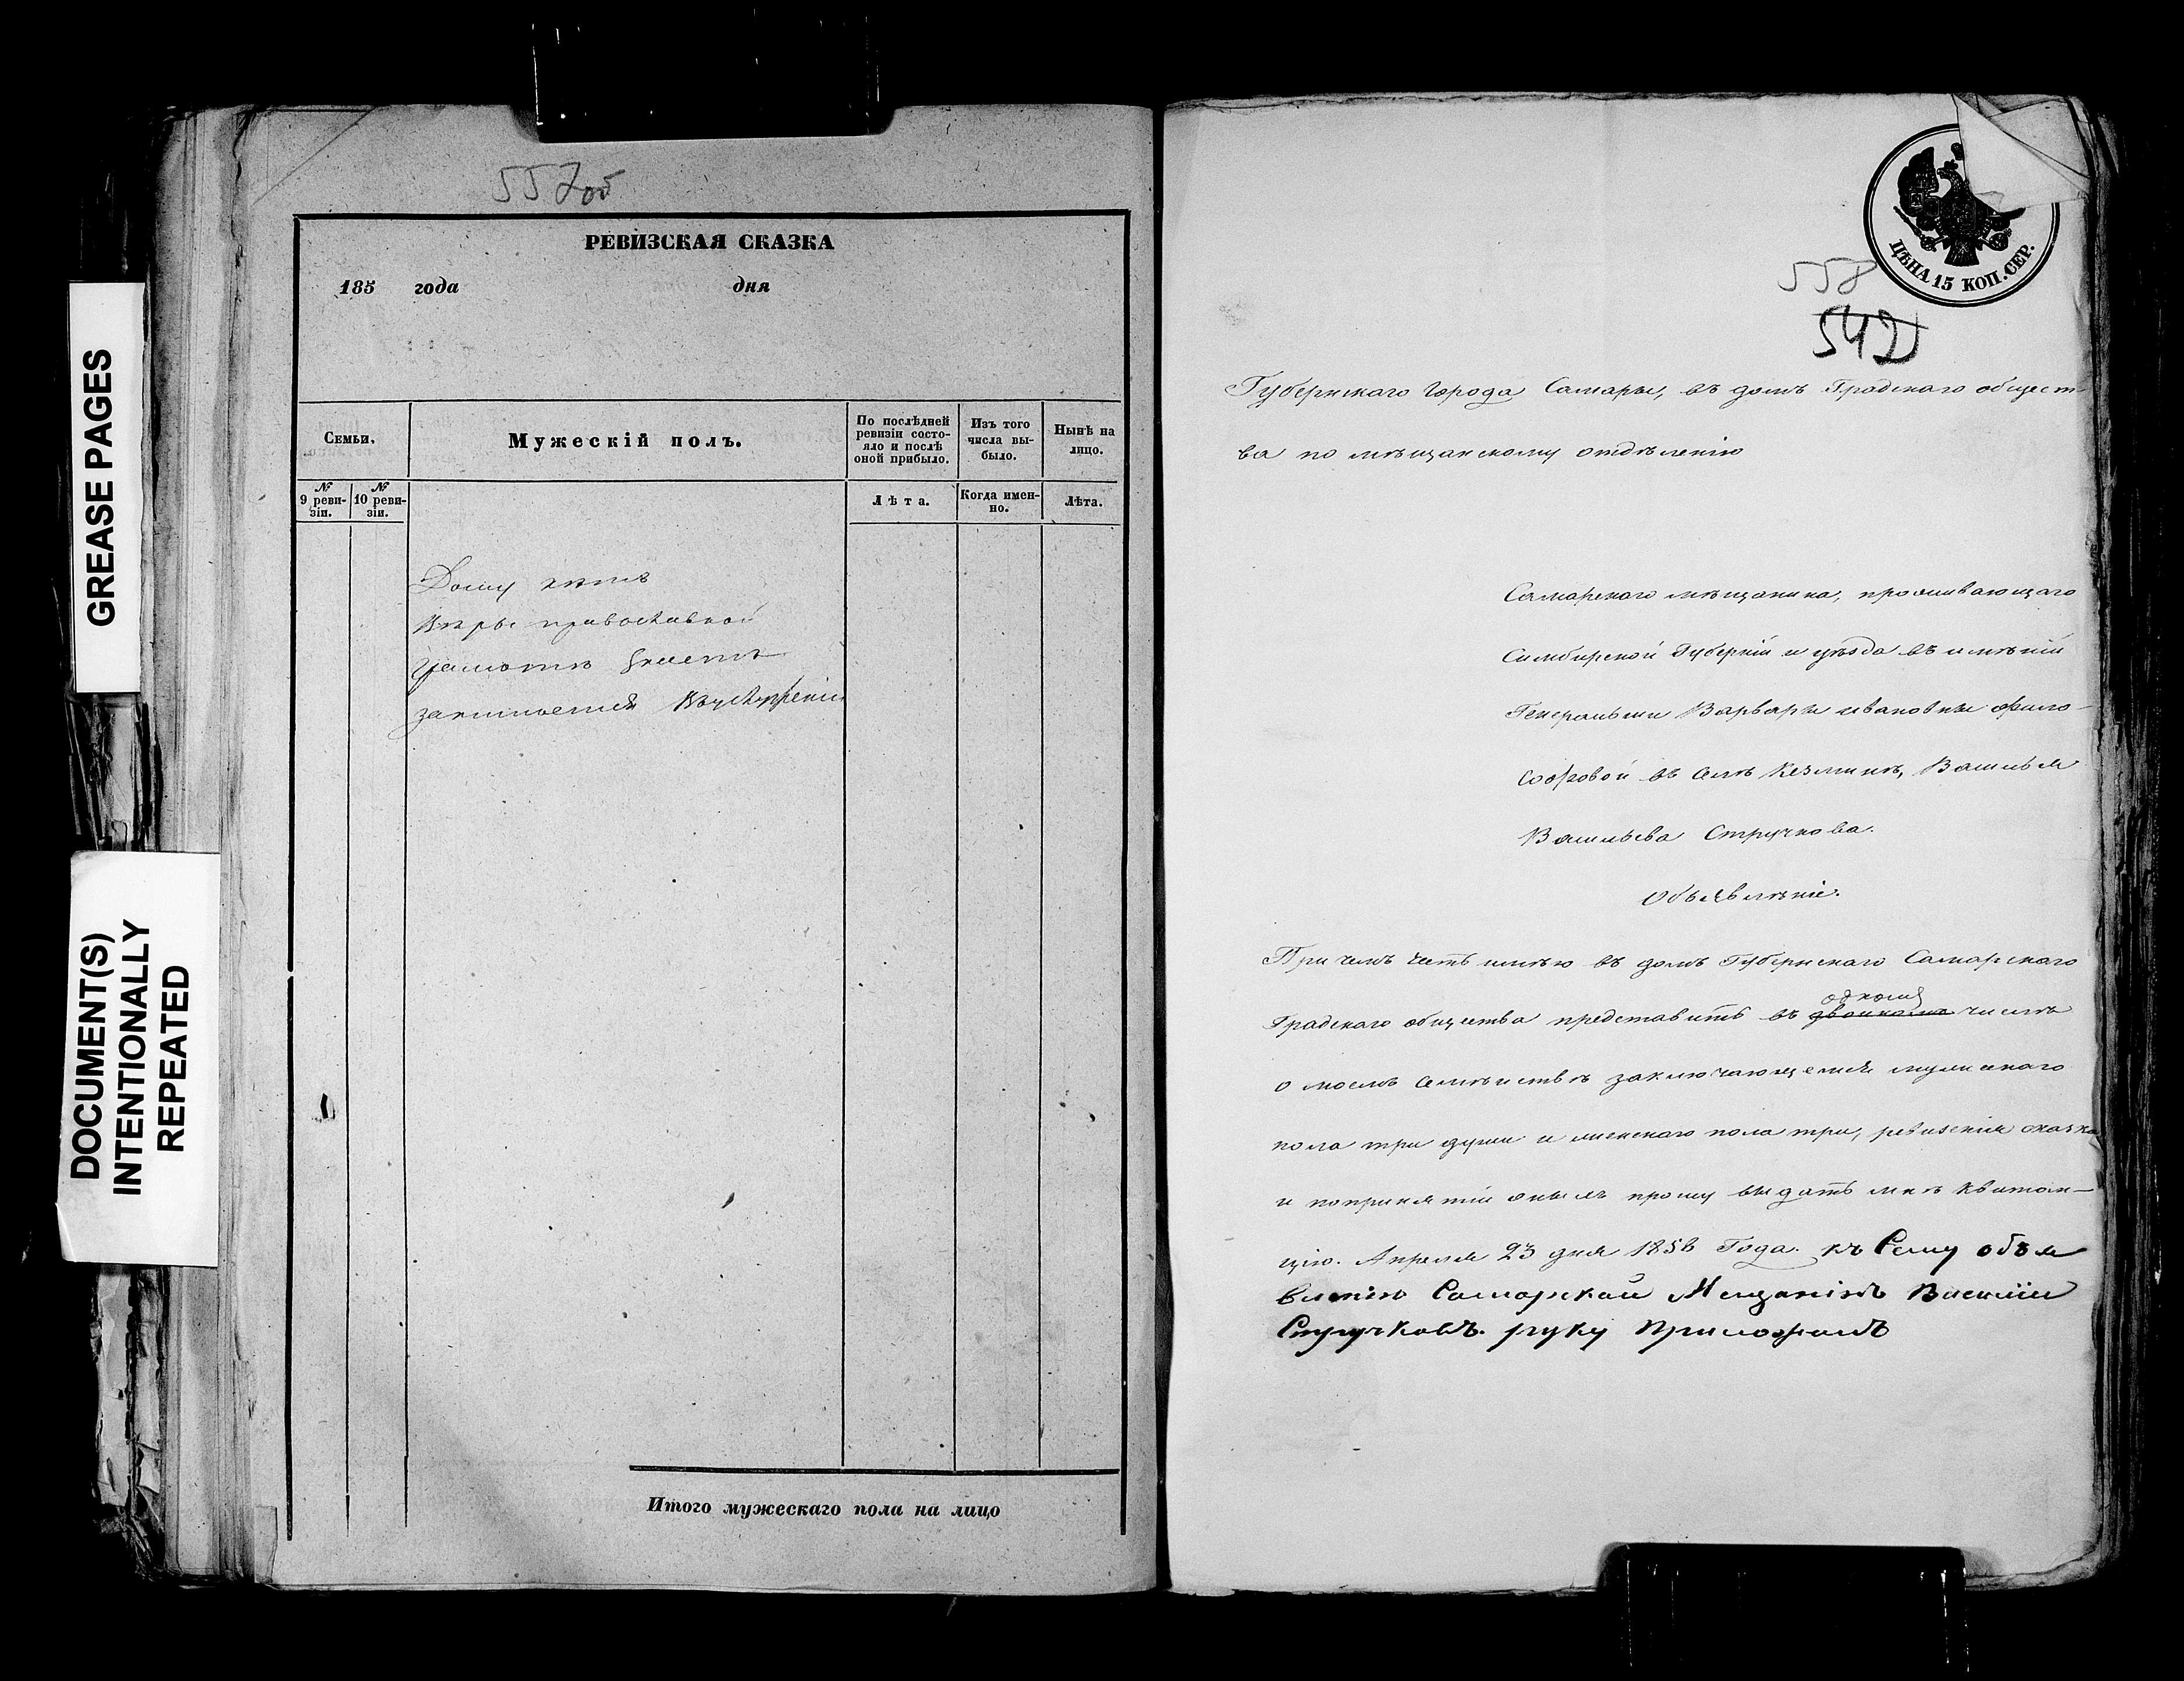 GREASE PAGES
DOCUMENT(S)
INTENTIONALLY
REPEATED
557об
РЕВИЗСКАЯ СКАЗКА
185 года дня
Семьи.
Мужескій полъ.
По послѣдней
ревизіи состо-
яло и послѣ
оной прибыло.
Изъ того
числа вы-
было.
Нынѣ на
лицо.
№
9 реви-
зіи.
№
10 реви-
зіи.
Лѣта.
Когда имен-
но.
Лѣта.
Дому нѣтъ
Вѣры православной
Грамотѣ знаетъ
занимается
Итого мужескаго пола на лицо
ЦѢНА 15 КОП. СЕР.
558
542
Губернскаго города Самары, въ домъ Градскаго общест-
ва по мѣщанскому отдѣленію
Самарскаго мѣщанина, проживающаго
Симбирской Губерніи и уѣзда въ имѣніи
Генеральши Варвары ивановны фило-
софовой въ селѣ Кезминѣ, Василья
Васильева Стручкова.
Объявлѣніе.
При чемъ честь имѣю въ домъ Губернскаго Самарскаго
одномъ
Градскаго общества представить въ двойномъ числѣ
о моемъ семѣйствѣ заключающемся мужскаго
пола три души и женскаго пола три, ревизскія сказки
и попринятіи оныхъ прошу выдать мнѣ квитан-
цію. Апреля 23 дня 1858 Года. къ Сему объя
влѣнію Самарскай Мещанінъ Василіи
Стручковъ. руку Приложилъ